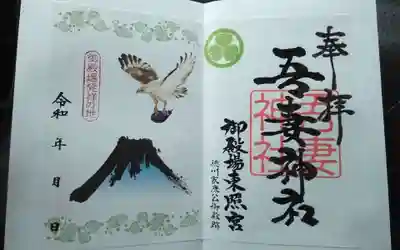 奉拝
吾妻神社
吾妻神社
御殿場東照宮
徳川家康公御殿跡
御殿場発祥の地
令和 年 月 日